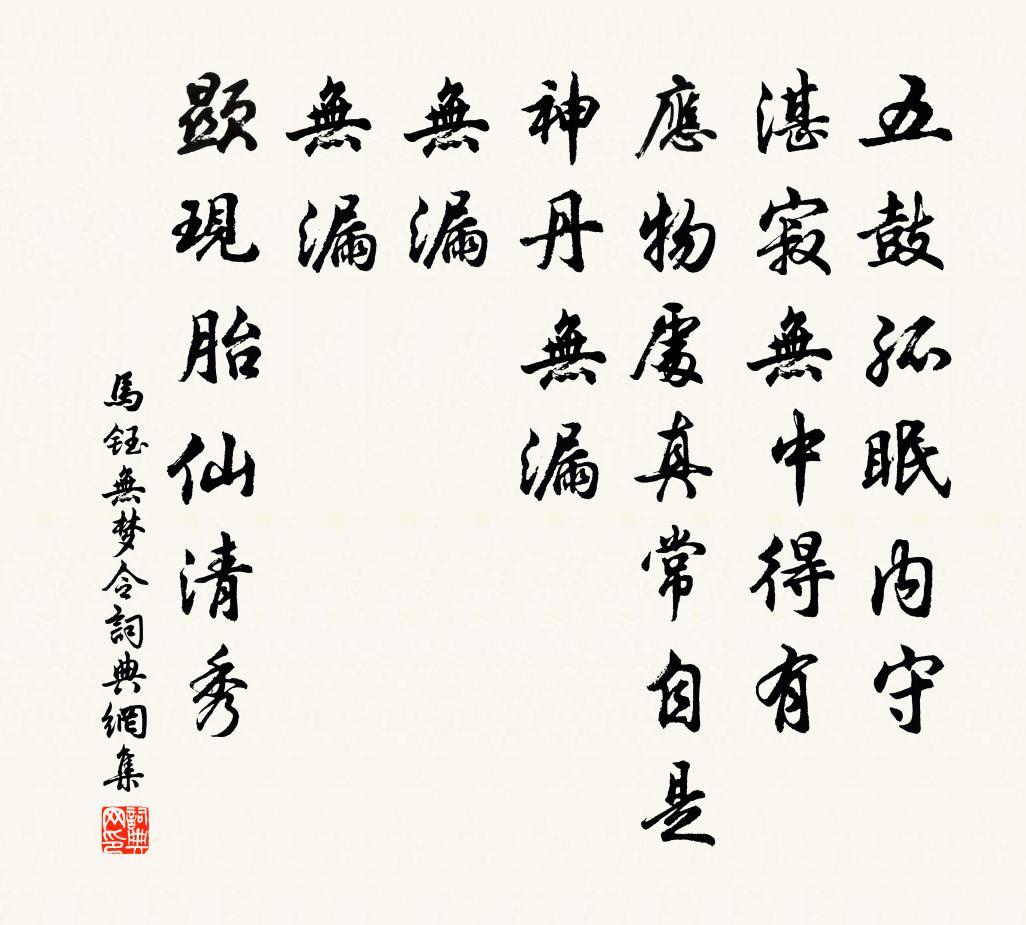 五鼓孤眠内守
湛寂無中得有
應物處真常自是
神丹無漏
無漏
無漏
顯現胎仙清秀
馬鈺無梦令詞典網集
詞典網印